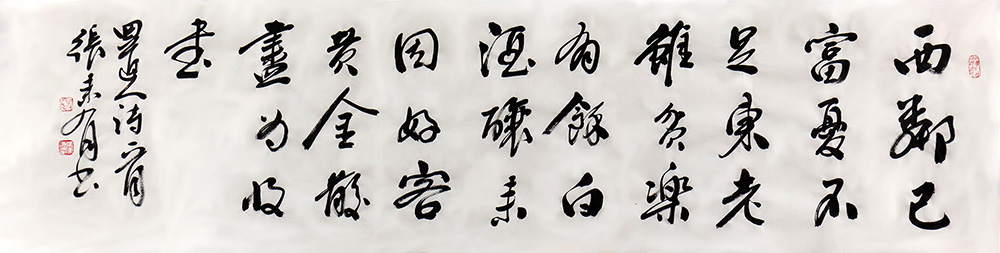 西鄰已
富憂不
足東老
雖貧樂
有餘白
酒釀來
因好客
黃金散
盡為收
書
張東有月書